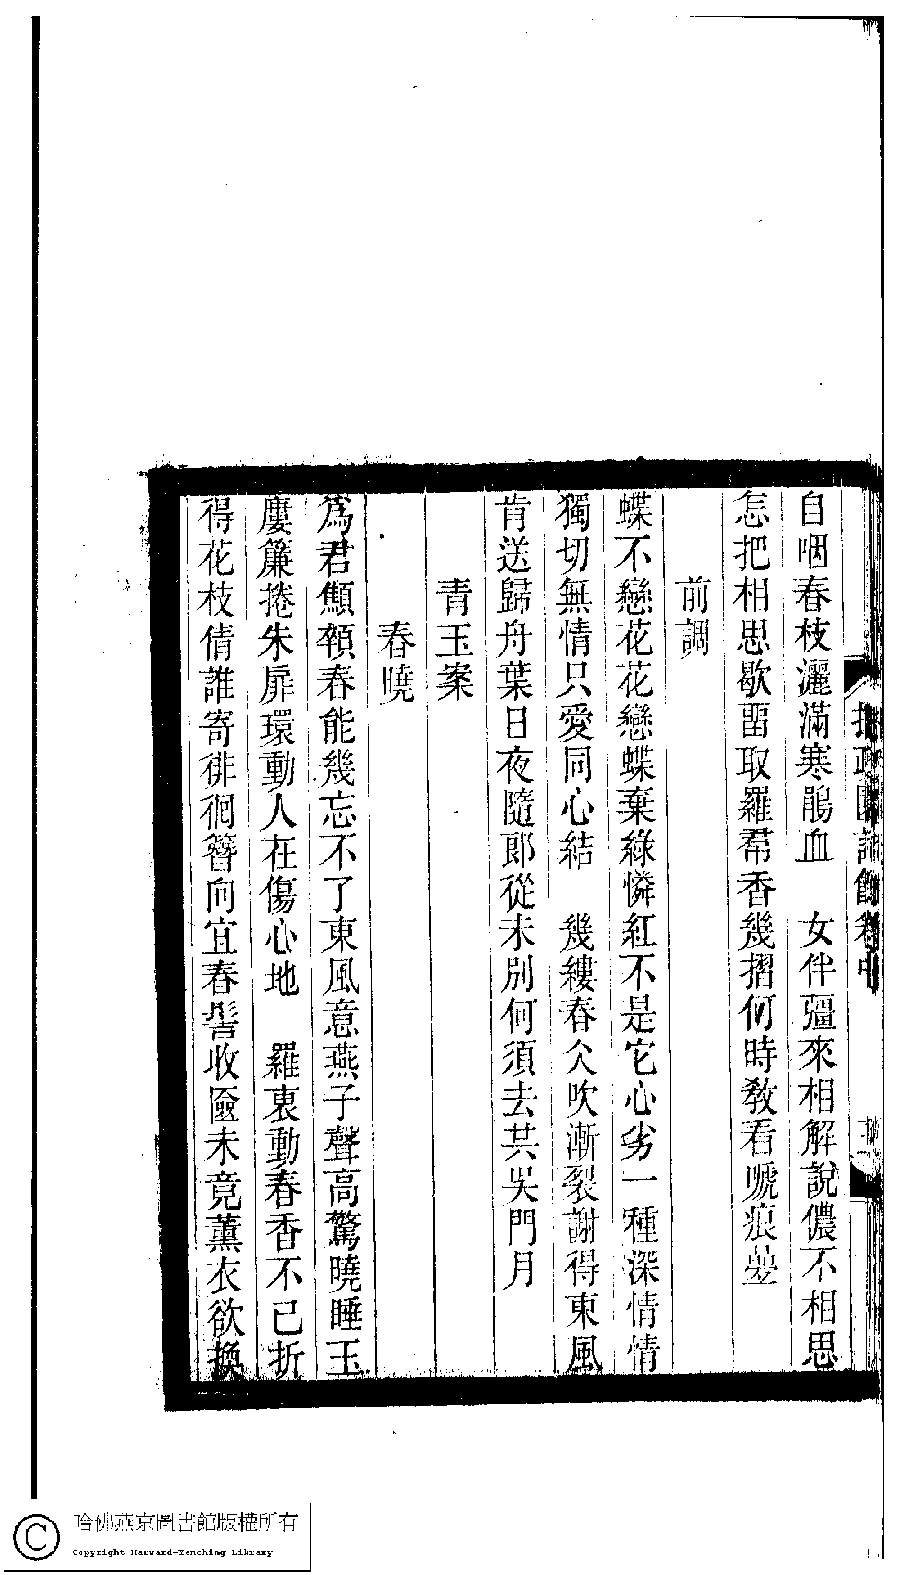 自咽春枝灑滿寒鵑血　女伴彊來相解說儂不相思
怎把相思歇畱取羅帬香幾摺何時敎看嗁痕㬪
前調
蝶不戀花花戀蝶棄綠憐紅不是它心劣一種深情情
獨切無情只愛同心結　幾縷春仌吹漸裂謝得東風
肯送歸舟葉日夜隨郎從未別何須去共吳門月
青玉案
春曉
爲君顦顇春能幾忘不了東風意燕子聲高驚曉睡玉
廔簾捲朱扉環動人在傷心地　羅裏動春香不已折
得花枝倩誰寄徘徊簪向宜春髻收匳未竟薰衣欲換
拙政園詩餘卷中
哈佛燕京圖書館版權所有
Copyright Harvard-Yenching Library